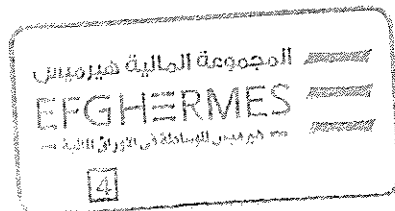 المجموعة المالية هيرميس
EFGHERMES
هيرميس للوساطة فى الاوراق المالية
4